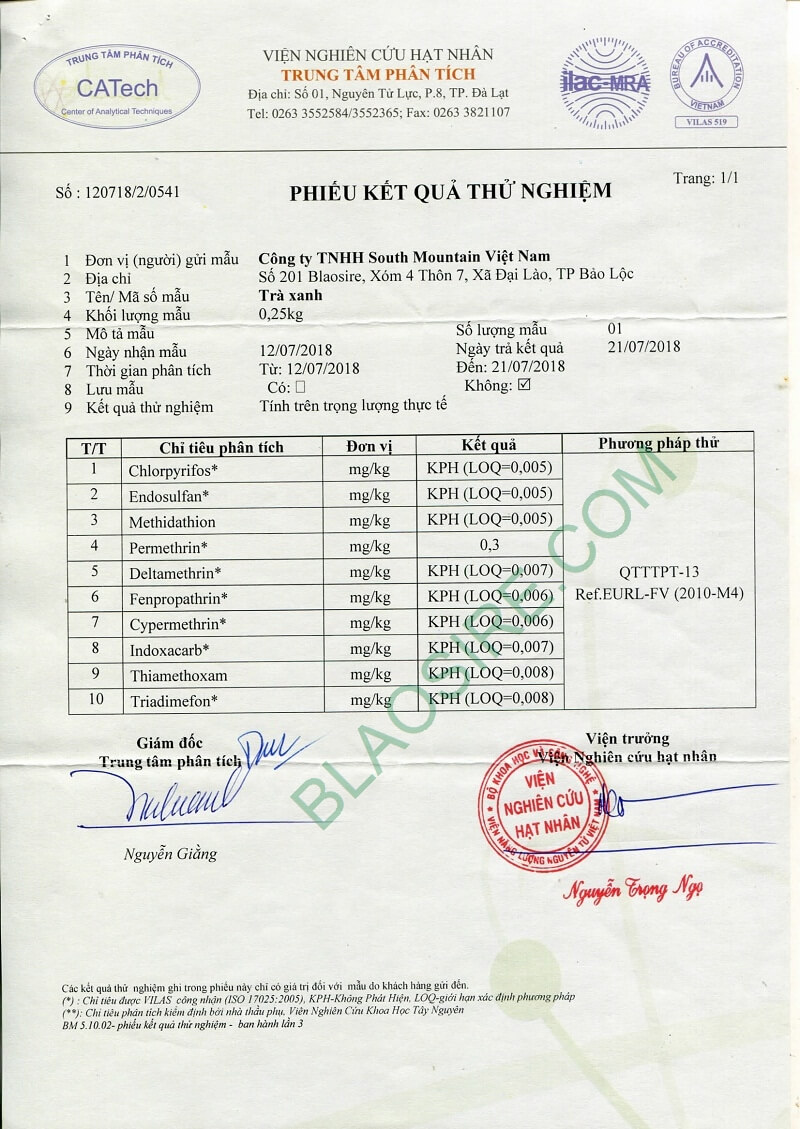 TRUNG TÂM PHÂN TÍCH
CATech
Center of Analytical Techniques
VIỆN NGHIÊN CỨU HẠT NHÂN
TRUNG TÂM PHÂN TÍCH
Địa chỉ: Số 01, Nguyên Tử Lực, P.8, TP. Đà Lạt
Tel: 0263 3552584/3552365; Fax: 0263 3821107
ilac-MRA
BUREAU OF ACCREDITATION
VIETNAM
VILAS 519
Số : 120718/2/0541
PHIẾU KẾT QUẢ THỬ NGHIỆM
Trang: 1/1
1 Đơn vị (người) gửi mẫu Công ty TNHH South Mountain Việt Nam
2 Địa chỉ Số 201 Blaosire, Xóm 4 Thôn 7, Xã Đại Lào, TP Bảo Lộc
3 Tên/ Mã số mẫu Trà xanh
4 Khối lượng mẫu 0,25kg
5 Mô tả mẫu Số lượng mẫu 01
6 Ngày nhận mẫu 12/07/2018 Ngày trả kết quả 21/07/2018
7 Thời gian phân tích Từ: 12/07/2018 Đến: 21/07/2018
8 Lưu mẫu Có: ☐ Không: ☑
9 Kết quả thử nghiệm Tính trên trọng lượng thực tế
T/T Chỉ tiêu phân tích Đơn vị Kết quả Phương pháp thử
1 Chlorpyrifos* mg/kg KPH (LOQ=0,005)
2 Endosulfan* mg/kg KPH (LOQ=0,005)
3 Methidathion mg/kg KPH (LOQ=0,005)
4 Permethrin* mg/kg 0,3
5 Deltamethrin* mg/kg KPH (LOQ=0,007)
6 Fenpropathrin* mg/kg KPH (LOQ=0,006)
7 Cypermethrin* mg/kg KPH (LOQ=0,006)
8 Indoxacarb* mg/kg KPH (LOQ=0,007)
9 Thiamethoxam mg/kg KPH (LOQ=0,008)
10 Triadimefon* mg/kg KPH (LOQ=0,008)
QTTTPT-13
Ref.EURL-FV (2010-M4)
BLAOSIRE.COM
Giám đốc
Trung tâm phân tích
Nguyễn Giằng
Viện trưởng
Viện Nghiên cứu hạt nhân
BỘ KHOA HỌC VÀ CÔNG NGHỆ
VIỆN
NGHIÊN CỨU
HẠT NHÂN
VIỆN NĂNG LƯỢNG NGUYÊN TỬ VIỆT NAM
Nguyễn Trọng Ngọ
Các kết quả thử nghiệm ghi trong phiếu này chỉ có giá trị đối với mẫu do khách hàng gửi đến.
(*) : Chỉ tiêu được VILAS công nhận (ISO 17025:2005), KPH-Không Phát Hiện, LOQ-giới hạn xác định phương pháp
(**): Chỉ tiêu phân tích kiểm định bởi nhà thầu phụ, Viên Nghiên Cứu Khoa Học Tây Nguyên
BM 5.10.02- phiếu kết quả thử nghiệm - ban hành lần 3